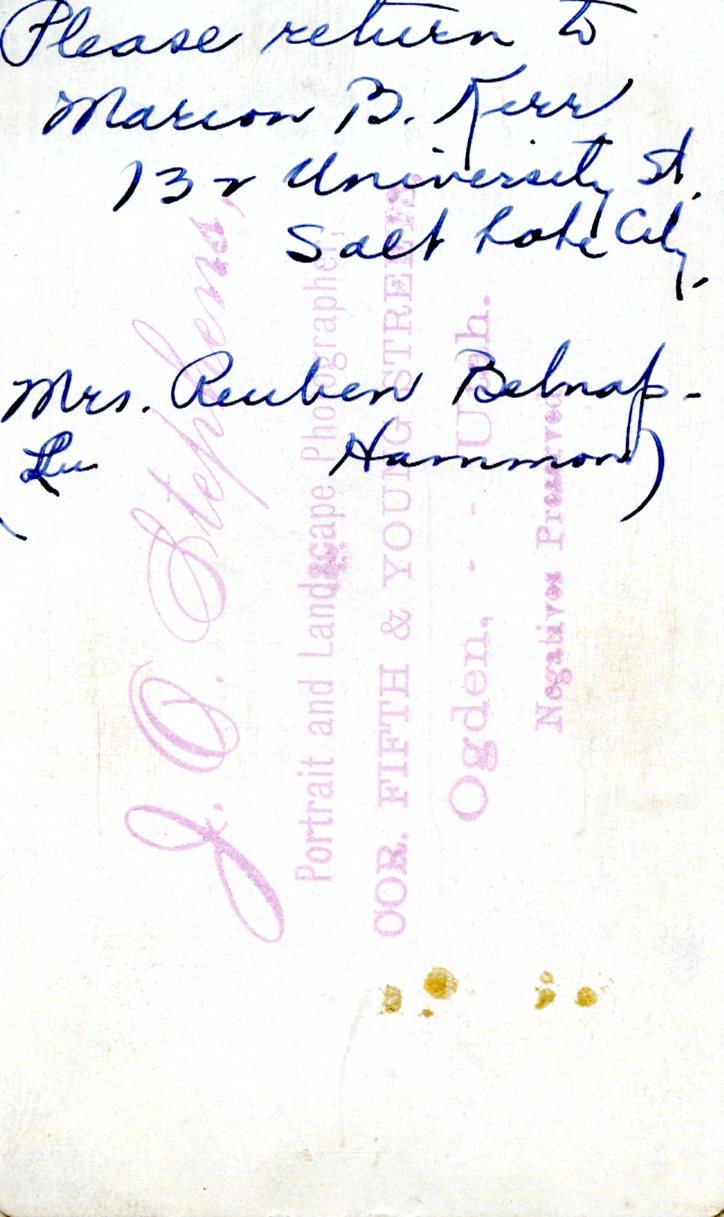 Please return to
Marion B. Kerr
132 University St.
Salt Lake City.
Mrs. Reuben Belnap-
(Lu Hammon)
J. O. Stephens,
Portrait and Landscape Photographer,
COR. FIFTH & YOUNG STREETS,
Ogden, - - Utah.
Negatives Preserved